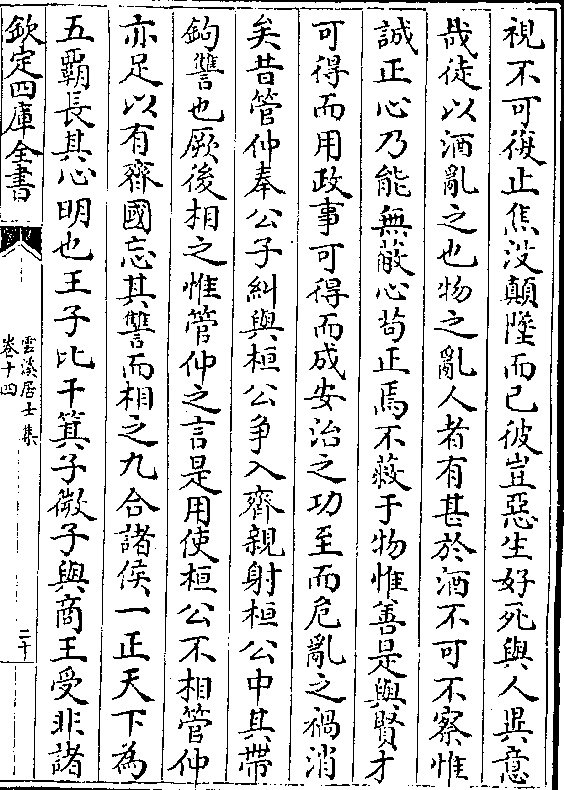 視不可復止焦沒顛墜而已彼豈惡生好死與人異意
哉徒以酒亂之也物之亂人者有甚於酒不可不察惟
誠正心乃能無蔽心苟正焉不蔽于物惟善是與賢才
可得而用政事可得而成安治之功至而危亂之禍消
矣昔管仲奉公子糾與桓公爭入齊親射桓公中其帶
鉤讐也厥後相之惟管仲之言是用使桓公不相管仲
亦足以有齊國忘其讐而相之九合諸侯一正天下為
五霸長其心明也王子比干箕子微子與商王受非諸
欽定四庫全書
雲溪居士集
卷十四
二十